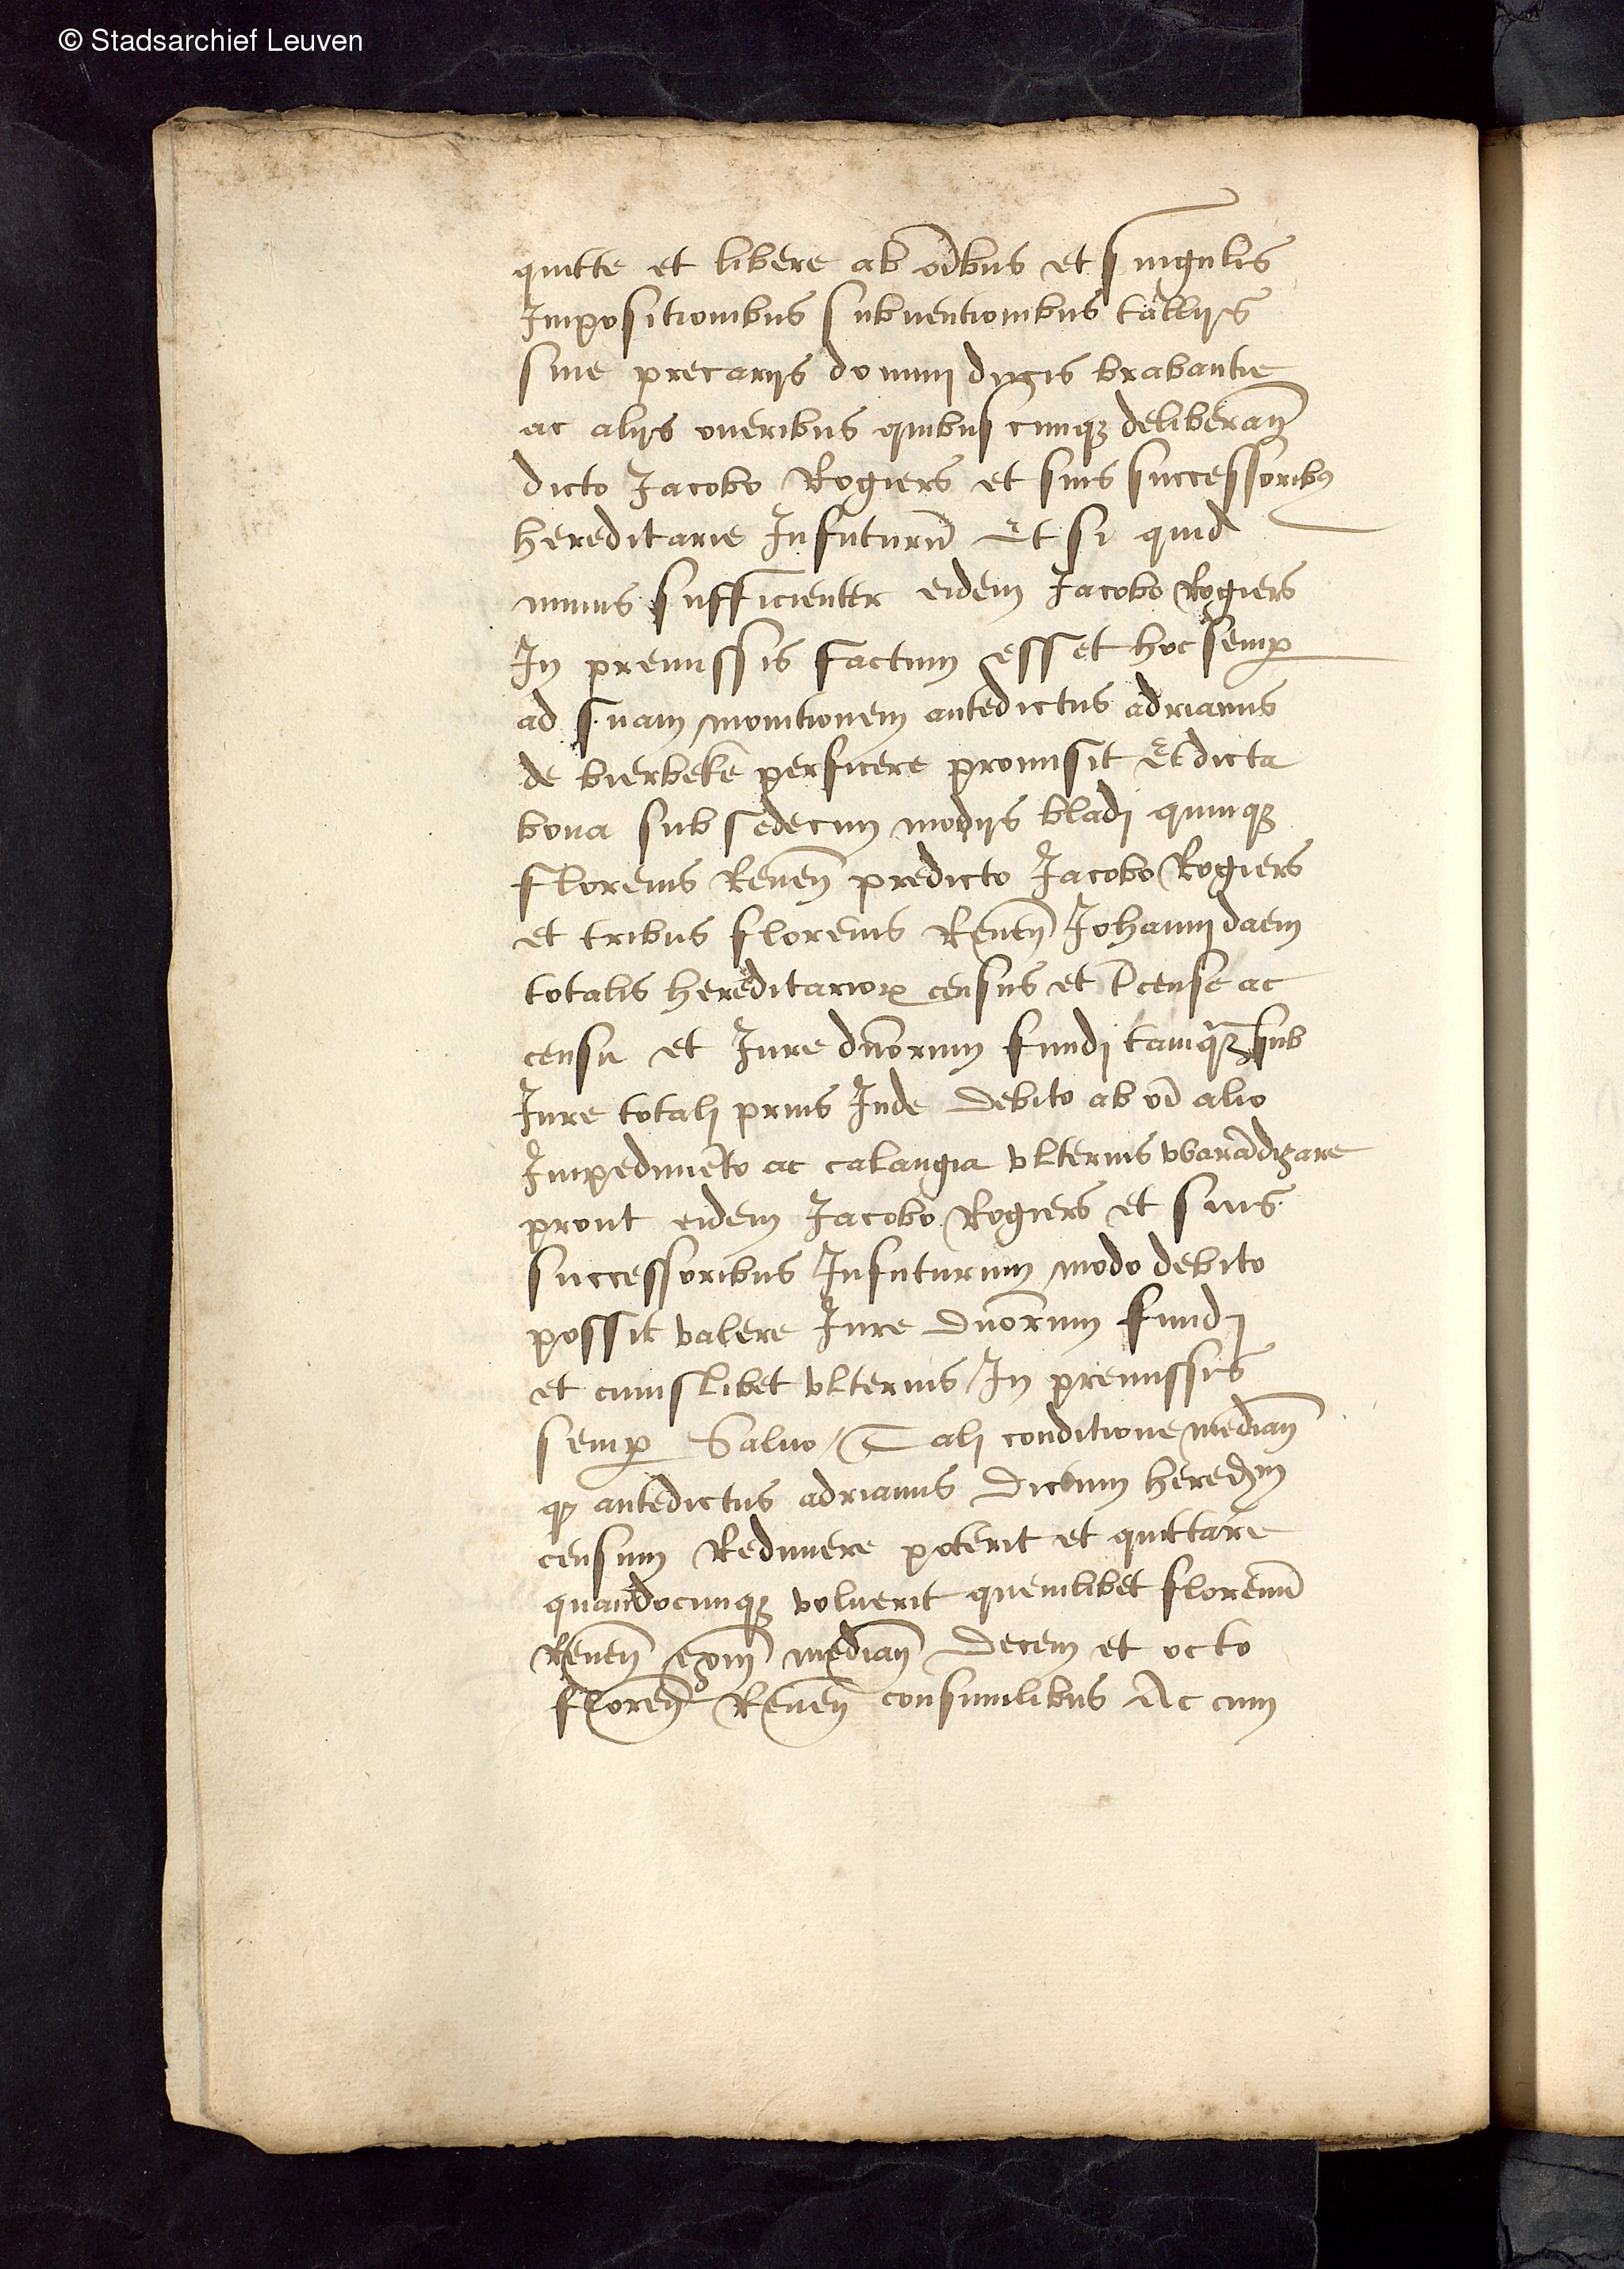 © Stadsarchief Leuven
quitte et libere ab o̅ibus et singulis
Impositionibus subuentionibus tallijs
siue precarijs dominj ducis brabantie
ac alijs oneribus quibuscunqꝫ deliberan̅
dicto Jacobo Rogiers et suis successoribꝰ
hereditarie Infuturu̅ Et si quid
minus sufficienter eidem Jacobo Rogiers
In premissis factum esset hoc semꝑ
ad suam monitionem antedictus adrianus
de bierbeke perficere promisit Et dicta
bona sub sedecim modijs bladj quinqꝫ
florenis Renen̅ predicto Jacobo Rogiers
et tribus florenis Renen̅ Johannj daem
totalis hereditarioꝝ census et ꝑcense ac
censu et Jure dn̅orum fundj tamqꝫ sub
Jure totalj prius Inde debito ab o̅i alio
Impedime̅to ac calangia vlterius wara̅dizare
prout eidem Jacobo Rogiers et suis
successoribus Infuturum modo debito
possit valere Jure dn̅orum fundj
et cuiuslibet vlterius In premissis
semꝑ Saluo / Talj conditione median̅
qꝫ antedictus adrianus dictum heredm̅
censum Redimere poterit et quittare
quandocunqꝫ voluerit quemlibet florenu̅
Renen̅ eoru̅ median̅ decem et octo
floren̅ Renen̅ consimilibus Ac cum